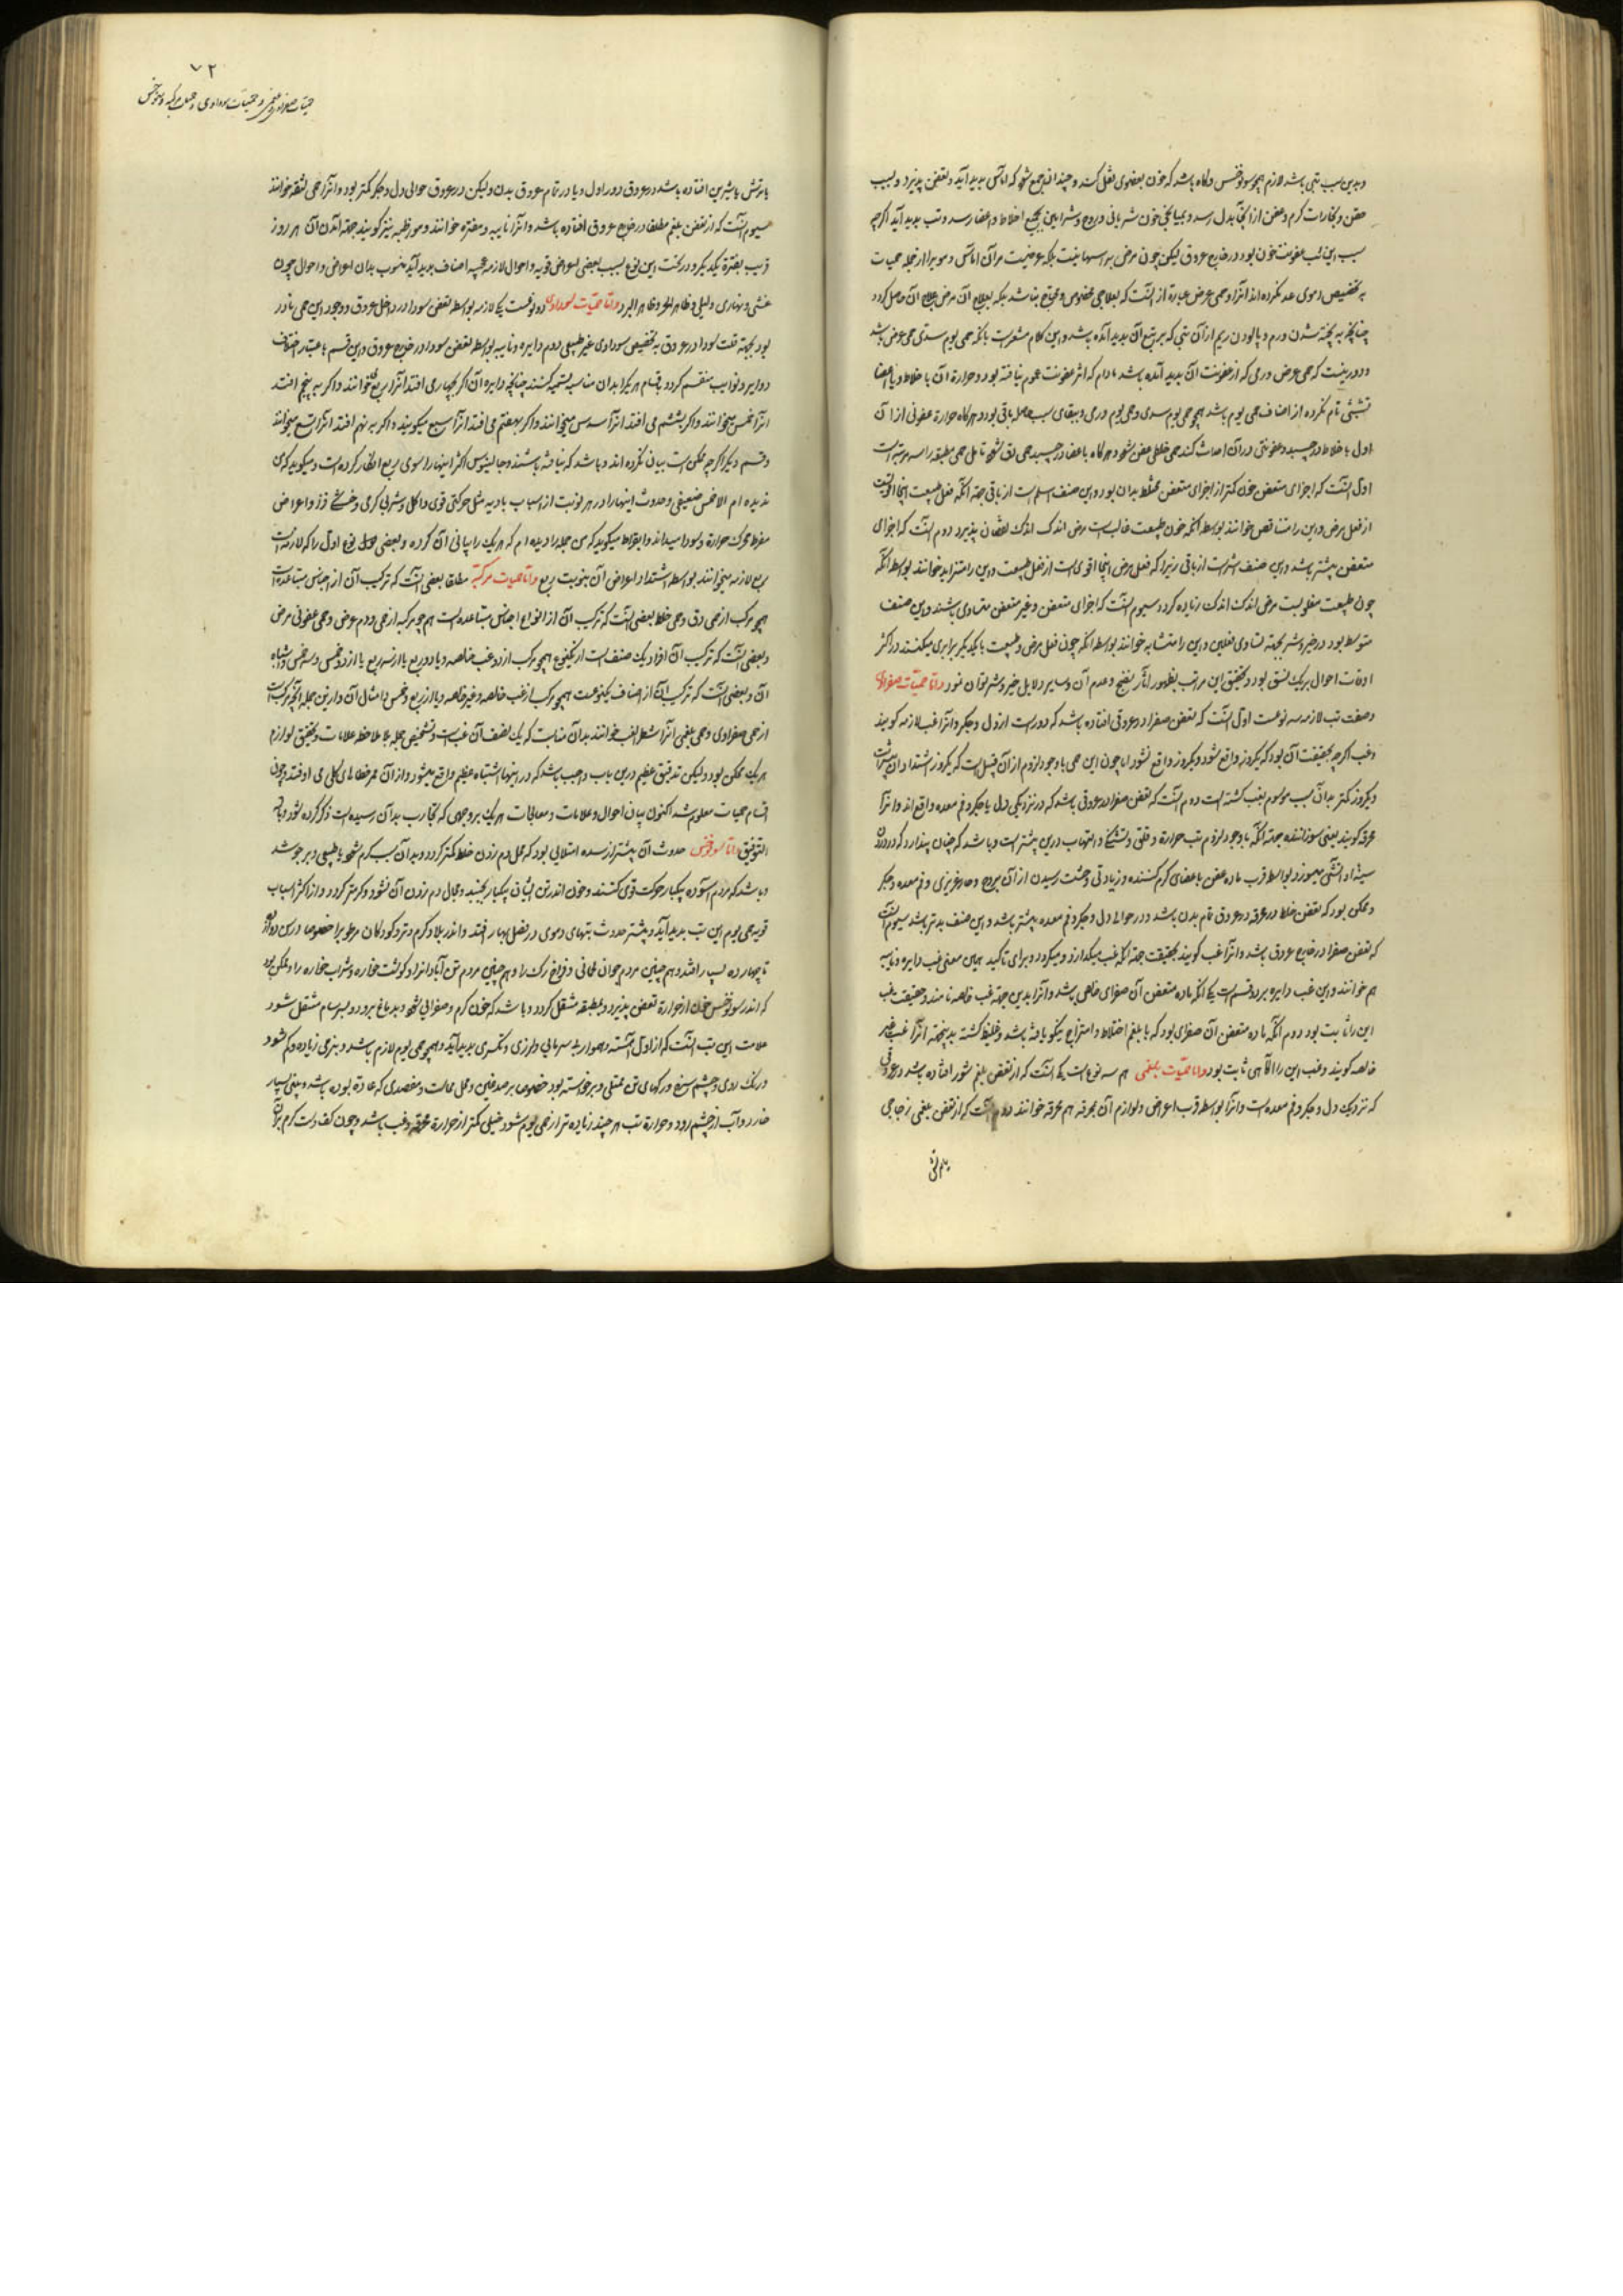 وبدین سبب تبی باشد لازم همچو سونوخس وکاه باشد که خون بعضوی نقل کند و چندان جمع شود که اماس بدید آید وتعفن پذیرد وبسبب
عفن وبخارات کرم وعفن از انجا بدل رسد وبمیانجی خون شریانی وروح وشرایین بجمیع اخلاط واعضا رسد وتب بدید آید اکرچه
سبب این تب عفونت خون بود در خارج عروق لیکن چون مرضی براسها نیست بلکه عرضیست مر آن اماس را
به تخصیص دموی عد نکرده اند انرا وحمی عرض عبارة از انست که بعلاجی مخصوص محتاج نباشد بلکه بعلاج آن مرض علاج آن حاصل کردد
چنانکه به پخته شدن ورم وپالودن ریم از آن تبی که بتبع آن بدید آمده باشد واین کلام مشعرست بانکه حمی یوم سدی حمی عرض باشد
ودور نیست که حمی عرض ورمی که از عفونت آن بدید آمده باشد مادام که اثر عفونت عموم نیافته بود وحرارة آن باخلاط ویا باعضا
تشبثی تام نکرده از اصناف حمی یوم باشد همچو حمی یوم سدی وحمی یوم ورمی وببقای سبب حامله باقی بود وهرکاه حرارة عفونی از ان
اول باخلاط درچسبد وعفونتی در آن احداث کند حمی خلطی عفن شود وهرکاه باعضا درچسبد حمی دق شود تامل حمی مطبقه را سه مرتبه است
اول انست که اجزای متعفن خون کمتر از اجزای متعفن مختلط بدان بود واین صنف اسلم است از باقی جهة انکه فعل طبیعت اینجا اقویست
از فعل مرض واین را متناقص خوانند بواسطه انکه چون طبیعت غالب است مرض اندک اندک نقصان پذیرد دوم انست که اجزای
متعفن بیشتر باشد واین صنف اشرست از باقی زیرا که فعل مرض اینجا اقوی است از فعل طبیعت واین را متزاید خوانند بواسطه انکه
چون طبیعت مغلوبست مرض اندک اندک زیاده کردد سیوم انست که اجزای متعفن وغیر متعفن متساوی باشند واین صنف
متوسط بود در خیر وشر بجهة تساوی فعلین واین را متشابه خوانند بواسطه انکه چون فعل مرض وطبیعت با یکدیکر برابری میکنند در اکثر
اوقات احوال بر یک نسق بود وتحقیق این مراتب بظهور آثار نضج وعدم آن وسایر دلایل خیر وشر توان نمود واما حمیات صفراوی
وصفت تب لازمه سه نوعست اول انست که تعفن صفرا در عروقی افتاده باشد که دورست از دل وجکر وانرا غب لازمه کویند
وغب اکرچه بحقیقت آن بود که یکروز واقع شود ویکروز واقع نشود اما چون این حمی باوجود لزوم از آن قبیل است که یکروز اشتداد ان بیشترست
ودیکروز کمتر بدان سبب موسوم بغب کشته است دوم انست که تعفن صفرا در عروقی باشد که در نزدیکی دل یا جکر وفم معده واقع اند وانرا
محرقه کویند یعنی سوزاننده جهة انکه باوجود لزوم تب حرارة وقلق وتشنکی والتهاب درین بیشترست وباشد که چنان پندارد که در درون
سینه او اتشی میسوزد بواسطه قرب ماده عفن باعضای کرم کننده وزیادتی وحشت رسیدن از آن بروح وحار غریزی وفم معده وجکر
وممکن بود که تعفن خلط در محرقه در عروق تمام بدن باشد ودر حوالی دل وجکر وفم معده بیشتر باشد واین صنف بدتر باشد سیوم انست
که تعفن صفرا در خارج عروق باشد وانرا غب کویند بحقیقت جهة انکه غب میکذارد ومیکیرد وبرای تاکید همان معنی غب دایره ونایبه
هم خوانند واین غب دایره بر دو قسم است یکی انکه ماده متعفن آن صفرای خالص باشد وانرا بدین جهة غب خالصه نامند وحقیقت غب
این را ثابت بود دوم انکه ماده متعفن آن صفرای بود که با بلغم اختلاط وامتزاج نیکو یافته باشد وغلیظ کشته بدینجهة انرا غب غیر
خالصه کویند وغب این را کاهی ثابت بود واما حمیات بلغمی هم سه نوع است یکی انست که از تعفن بلغم شور افتاده باشد در عروقی
که نزدیک دل وجکر وفم معده است وانرا بواسطه قرب اعراض ولوازم آن بمحرقه هم محرقه خوانند دوم انست که از تعفن بلغمی زجاجی
یا ترش
٧٢
حمیات صفراوی وبلغمی وحمیات سوداوی وحمیات مرکبه وسونوخس
یا ترش یا شیرین افتاده باشد در عروق دور از دل ویا در تمام عروق بدن ولیکن در عروق حوالی دل وجکر کمتر بود وانرا حمی لثقه خوانند
سیوم انست که از تعفن بلغم مطلقا در خارج عروق افتاده باشد وانرا نایبه ومفتره خوانند ومواظبه نیز کویند جهة آمدن آن هر روز
قریب بفترة یکدیکر ودر تحت این نوع بسبب بعضی اعراض قریبه واحوال لازمه عجیبه اصناف بدید آید منسوب بدان اعراض واحوال چون
غشی ونهاری ولیلی وظاهر الحر وظاهر البرد واما حمیات سوداوی دو نوعست یکی لازمه بواسطه تعفن سودا در داخل عروق ووجود این حمی نادر
بود بجهة قلت سودا در عروق به تخصیص سوداوی غیر طبیعی دوم دایره ونایبه بواسطه تعفن سودا در خارج عروق واین قسم باعتبار اختلاف
دوایر ونوایب منقسم کردد باقسام هر یک را بدان مناسب تسمیه کنند چنانچه دایره آن اکر بچهارم می افتد انرا ربع خوانند واکر به پنجم افتد
انرا خمس میخوانند واکر بششم می افتد انرا سدس میخوانند واکر بهفتم می افتد انرا سبع میکویند واکر به نهم افتد انرا تسع میخوانند
وقسم دیکر اکرچه ممکن است بیان نکرده اند وباشد که نیافته باشند وجالینوس اکثر اینها را سوای ربع انکار کرده است ومیکوید که من
ندیده ام الا خمس ضعیفی وحدوث اینها را در هر نوبت از اسباب بادیه مثل حرکتی قوی واکل وشرب کرمی وخشکی فزا واعراض
مفرط محرک حرارة وسودا میداند وابقراط میکوید که من جمله را دیده ام که هر یک را بیانی آن کرده وبعضی نوع اول را که لازمه است
ربع لازمه میخوانند بواسطه اشتداد اعراض آن بنوبت ربع واما حمیات مرکبه مطلقا بعضی انست که ترکیب آن از اجناس متباعده است
همچو مرکب از حمی دق وحمی خلط بعضی انست که ترکیب آن از انواع اجناس متباعده است هم چو مرکبه از حمی ورم عرض وحمی عفونی مرض
وبعضی انست که ترکیب آن افراد یک صنف است از یکنوع همچو مرکب از دو غب خالصه ویا دو ربع یا از سه ربع یا از دو خمس وسه خمس واشباه
آن وبعضی انست که ترکیب آن از اصناف یکنوعست همچو مرکب از غب خالصه وغیر خالصه ویا از ربع وخمس وامثال آن واز این جمله انچه مرکبست
از حمی صفراوی وحمی بلغمی انرا شطر الغب خوانند بدان مناسبت که یک نصف آن غب است وتشخیص جمله بملاحظه علامات وتحقیق لوازم
هر یک ممکن بود ولیکن تدقیق عظیم درین باب واجب باشد که در اینها اشتباه عظیم واقع میشود واز آن ممر خطاهای کلی می اوفتد وچون
اقسام حمیات معلوم شد اکنون بیان احوال وعلامات ومعالجات هر یک بروجهی که تجارب بدان رسیده است ذکر کرده شود وبالله
التوفیق اما سونوخس حدوث آن بیشتر از سده امتلایی بود که محل دم زدن خلط کمتر کردد وبدان سبب کرم شود یا طبیعی وبرجوشد
وباشد که مردم آسوده یکبار حرکت قوی کنند وخون اندر تن ایشان یکبار بجنبد ومجال دم زدن آن نشود وکرمتر کردد واز اکثر اسباب
قویه حمی یوم این تب بدید آید وبیشتر حدوث تبهای دموی در فصل بهار افتد واندر بلاد کرم وتر وکودکان مرطوب را خصوصا در سن دوازده
تا چهارده بسیار افتد وهم چنین مردم جوان لحمانی وفراخ رک را وهم چنین مردم تن آباد انزاد کوشت خواره وشراب خواره را وممکن بود
که اندر سونوخس خون از حرارة تعفن پذیرد وبمطبقه منتقل کردد وباشد که خون کرم وصفرایی شود وبدماغ بررود وبسرسام منتقل شود
علامت این تب انست که از اول آهسته وهموار بی سرمایی ولرزی وتکسری بدید آید وهمچو حمی یوم لازم باشد وبنرمی زیاده وکم شود
ورنک روی وچشم سرخ ورکهای تن ممتلی وبرخواسته بود خصوصا بر صدغین ومحل حجامت وفصدی که عادة بوده باشد وبینی بسیار
خارد وآب از چشم رود وحرارة تب هر چند زیاده تر از حمی یوم شود خیلی کمتر از حرارة محرقه وغب باشد وچون کف دست کرم بران